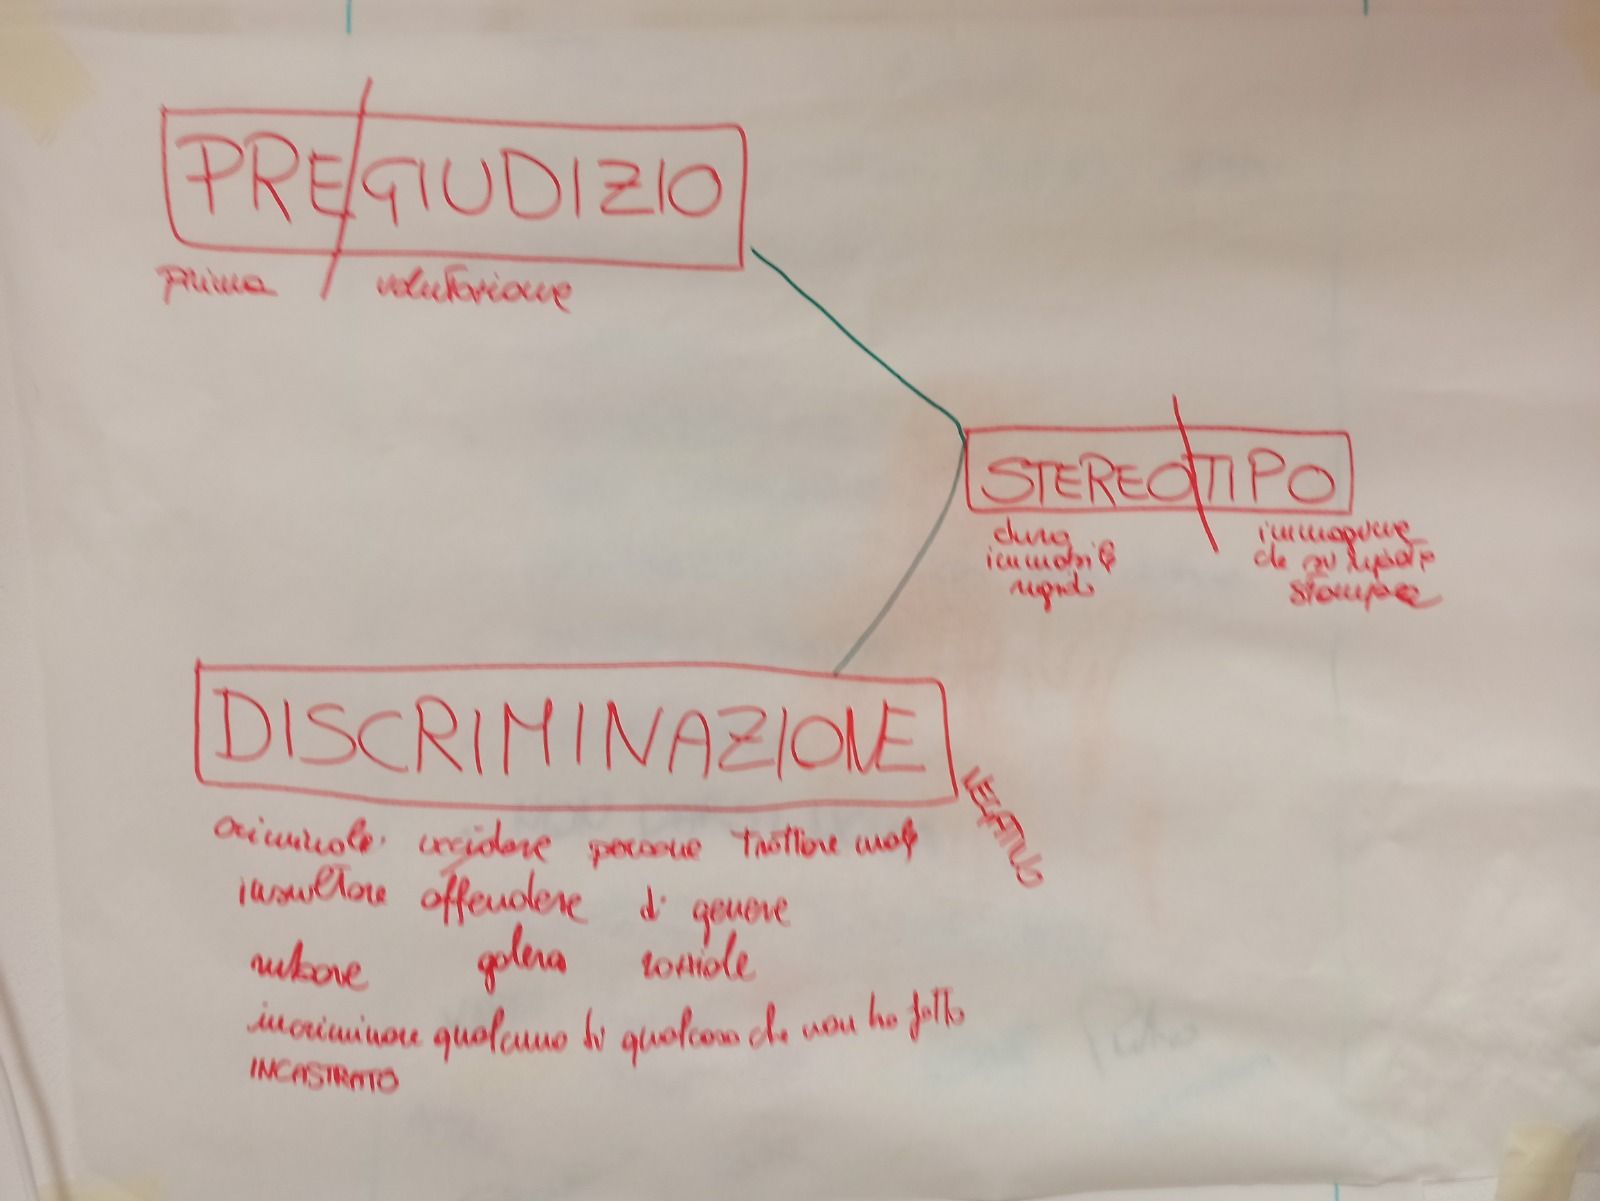 PRE/GIUDIZIO
prima valutazione
STEREO/TIPO
duro immagine
immobile che si ripete
rigido stampare
DISCRIMINAZIONE
NEGATIVO
criminale uccidere persone trattare male
insultare offendere di genere
rubare galera sociale
incriminare qualcuno di qualcosa che non ha fatto
INCASTRATO